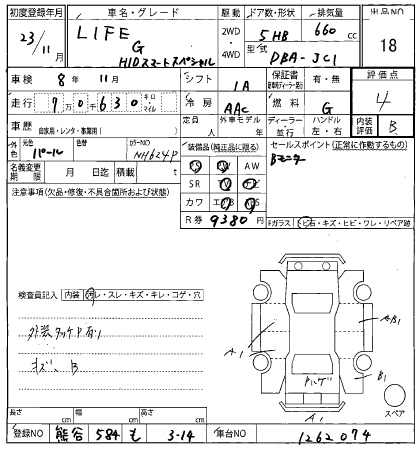 初度登録年月 車名・グレード 駆動 ドア数・形状 排気量 出品NO
23/11月 LIFE 2WD 5HB 660cc 18
G 4WD 型式 DBA-JC1
HIDスマートスペシャル
車検 8年 11月 シフト IA 保証書 有・無 評価点
走行 9万0千630キロ・マイル 冷房 AAC 燃料 G 4
車歴 自家用・レンタ・事業用( ) 定員 人 外車モデル 年 ディーラー・並行 ハンドル 左・右 内装評価 B
外色 元色 パール 色替 カラーNO NH624P 装備品(純正品に限る) セールスポイント(正常に作動するもの)
PS PW AW Bモニター
名義変更期限 月 日迄 積載 t SR TV ナビ
注意事項(欠品・修復・不具合箇所および状態) カワ エアB ABS
R券 9380円 Fガラス トビ石・キズ・ヒビ・ワレ・リペア跡
検査員記入 内装 汚レ・スレ・キズ・キレ・コゲ・穴
外装タッチP有リ
キズ、B
A1
AB1
B1
ハゲ
A1
スペア
長さ cm 幅 cm 高さ cm
登録NO 熊谷 584 も 3-14 車台NO 1262074